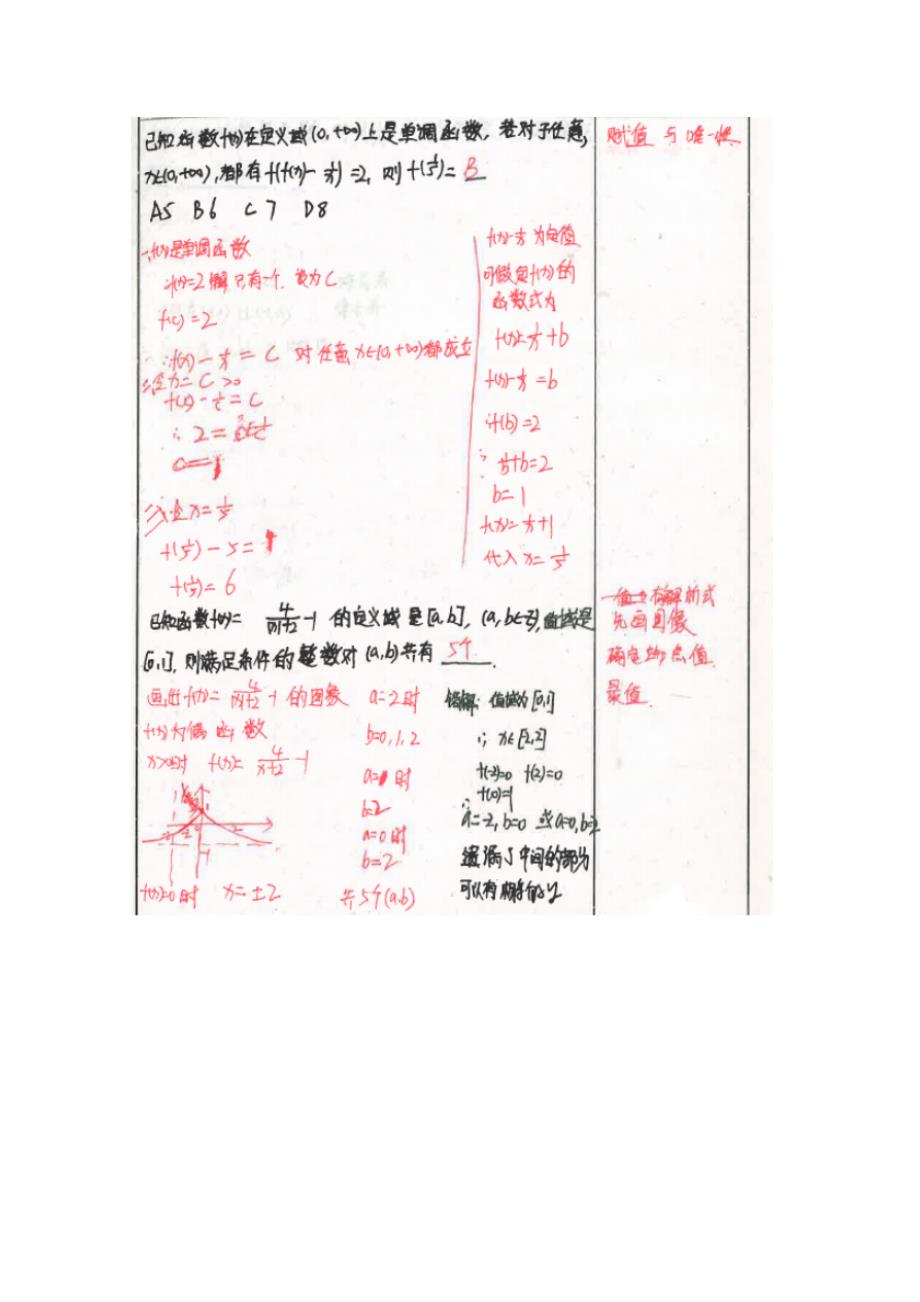 已知函数f(x)在定义域(0,+∞)上是单调函数,若对于任意,
x∈(0,+∞),都有f(f(x)-1/x)=2,则f(1/5)= B
A5 B6 C7 D8
一、f(x)是单调函数
∴f(x)=2解只有一个.设为C
f(c)=2
∴f(x)-1/x=C 对任意x∈(0,+∞)都成立
二、令x=C>0
f(c)-1/c=C
∴2=
c=1
三、令x=1/5
f(1/5)-5=1
f(1/5)=6
f(x)-1/x为定值
可假定f(x)的
函数式为
f(x)=1/x+b
f(x)-1/x=b
∴f(b)=2
∴1/b+b=2
b=1
f(x)=1/x+1
代入x=1/5
赋值与唯一性
已知函数f(x)=4/(|x|+2)-1的定义域是[a,b],(a,b∈Z),值域是
[0,1].则满足条件的整数对(a,b)共有 5个.
画出f(x)=4/(|x|+2)-1的图象
f(x)为偶函数
x>0时 f(x)=4/(x+2)-1
f(x)=0时 x=±2
a=2时
b=0,1,2
a=1时
b=2
a=0时
b=2
共5个(a,b)
错解:值域为[0,1]
∴x∈[-2,2]
f(-2)=0 f(2)=0
f(0)=1
∴a=-2,b=0或a=0,b=2
遗漏了中间的部分
可以有
有解析式
先画图像
确定端点值.
最值.